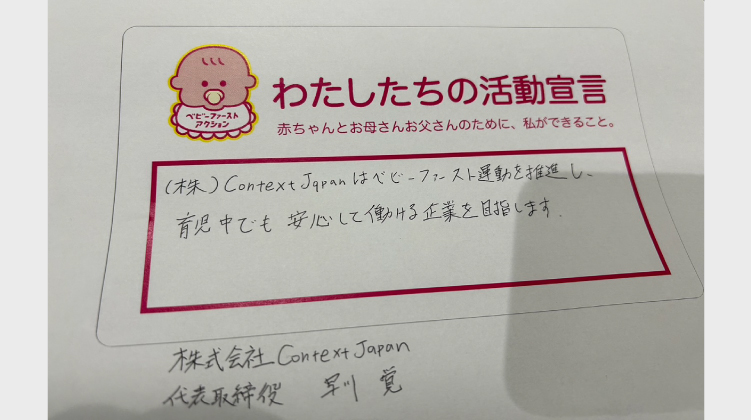 ベビーファースト
アクション
わたしたちの活動宣言
赤ちゃんとお母さんお父さんのために、私ができること。
(株) Context Japanはベビーファースト運動を推進し、
育児中でも 安心して働ける企業を目指します.
株式会社 Context Japan
代表取締役 早川 覚